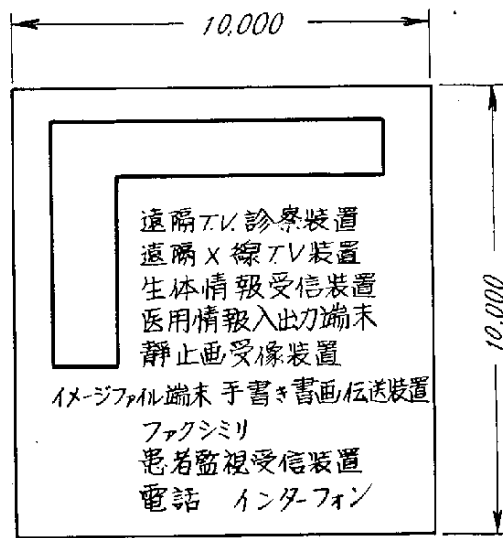 10,000
10,000
遠隔TV.診察装置
遠隔X線TV装置
生体情報受信装置
医用情報入出力端末
静止画受像装置
イメージファイル端末 手書き書画伝送装置
ファクシミリ
患者監視受信装置
電話 インターフォン